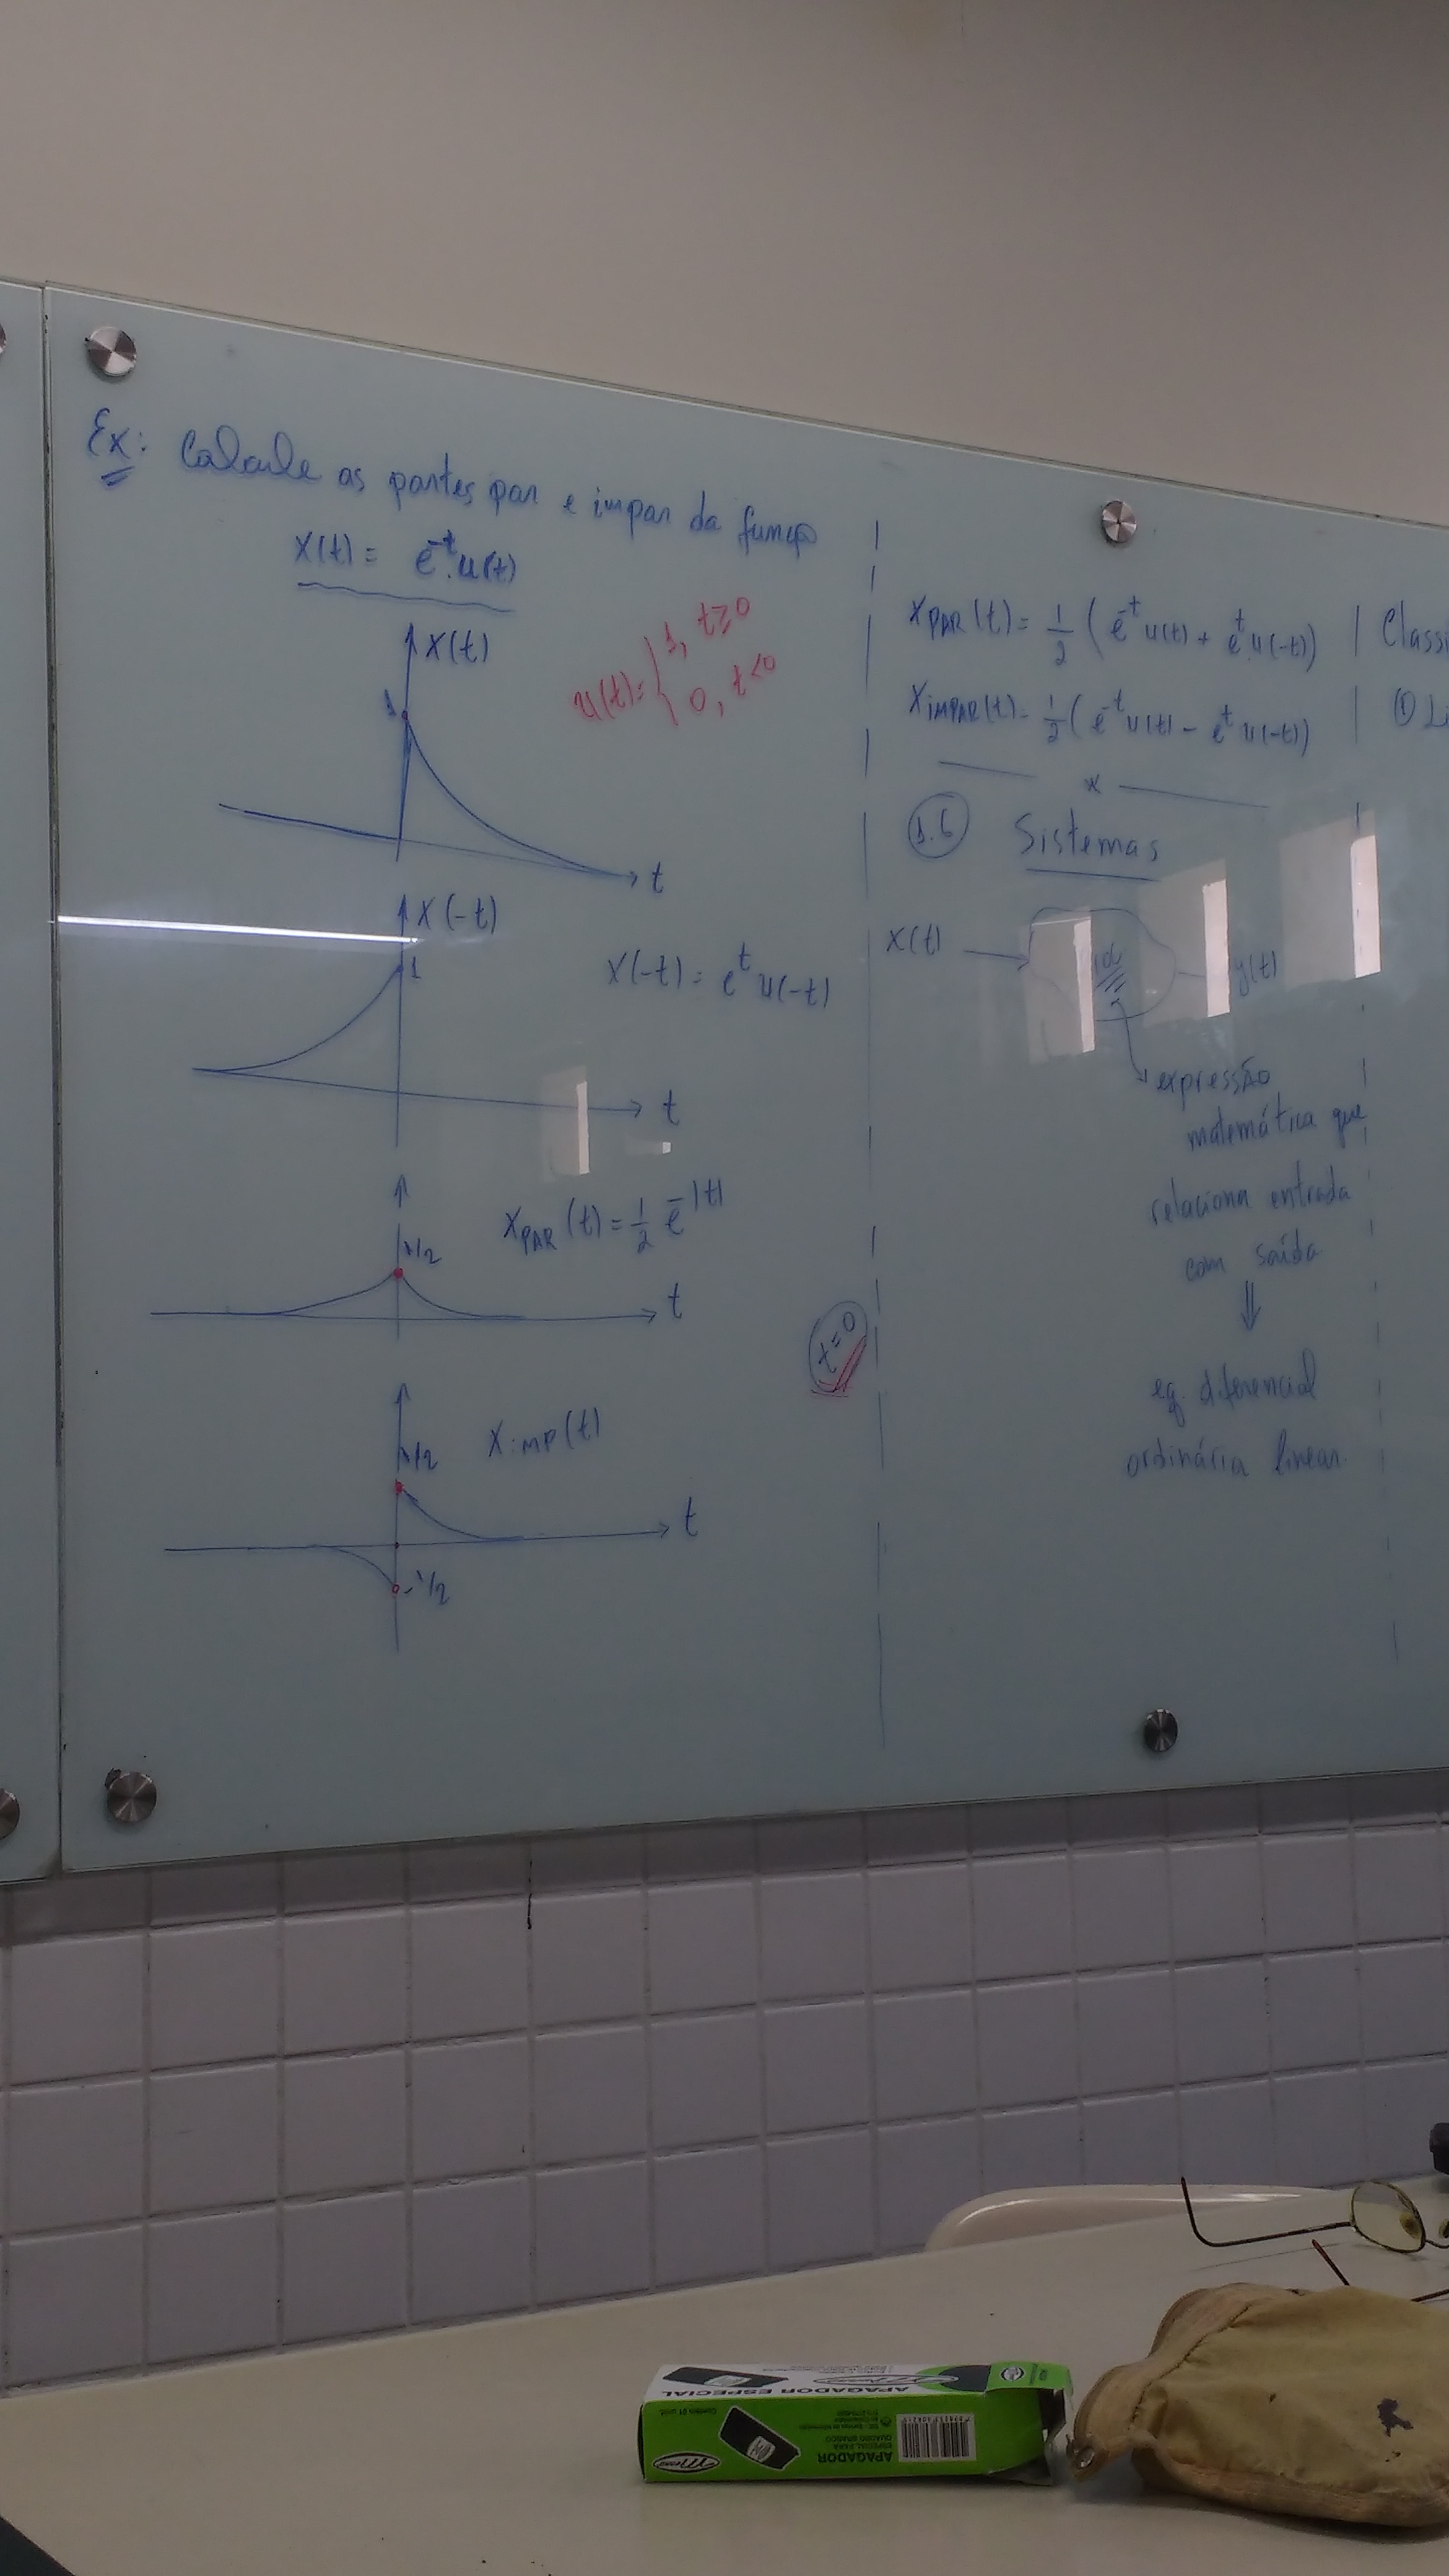 Ex: Calcule as partes par e impar da função
x(t) = e^-t.u(t)
x(t)
1
t
u(t) = { 1, t≥0
0, t<0
x(-t)
1
x(-t) = e^t u(-t)
t
1/2
xPAR(t) = 1/2 e^-|t|
t
t=0
1/2
ximp(t)
t
-1/2
xPAR(t) = 1/2 (e^-t u(t) + e^t.u(-t))
xiMPAR(t) = 1/2 (e^-t u(t) - e^t u(-t))
x
1.6 Sistemas
x(t)
y(t)
expressão
matemática que
relaciona entrada
com saída
⇓
eq. diferencial
ordinária linear.
Class
①
APAGADOR ESPECIAL
Contém 01 unid.
APAGADOR
ESPECIAL PARA
QUADRO BRANCO